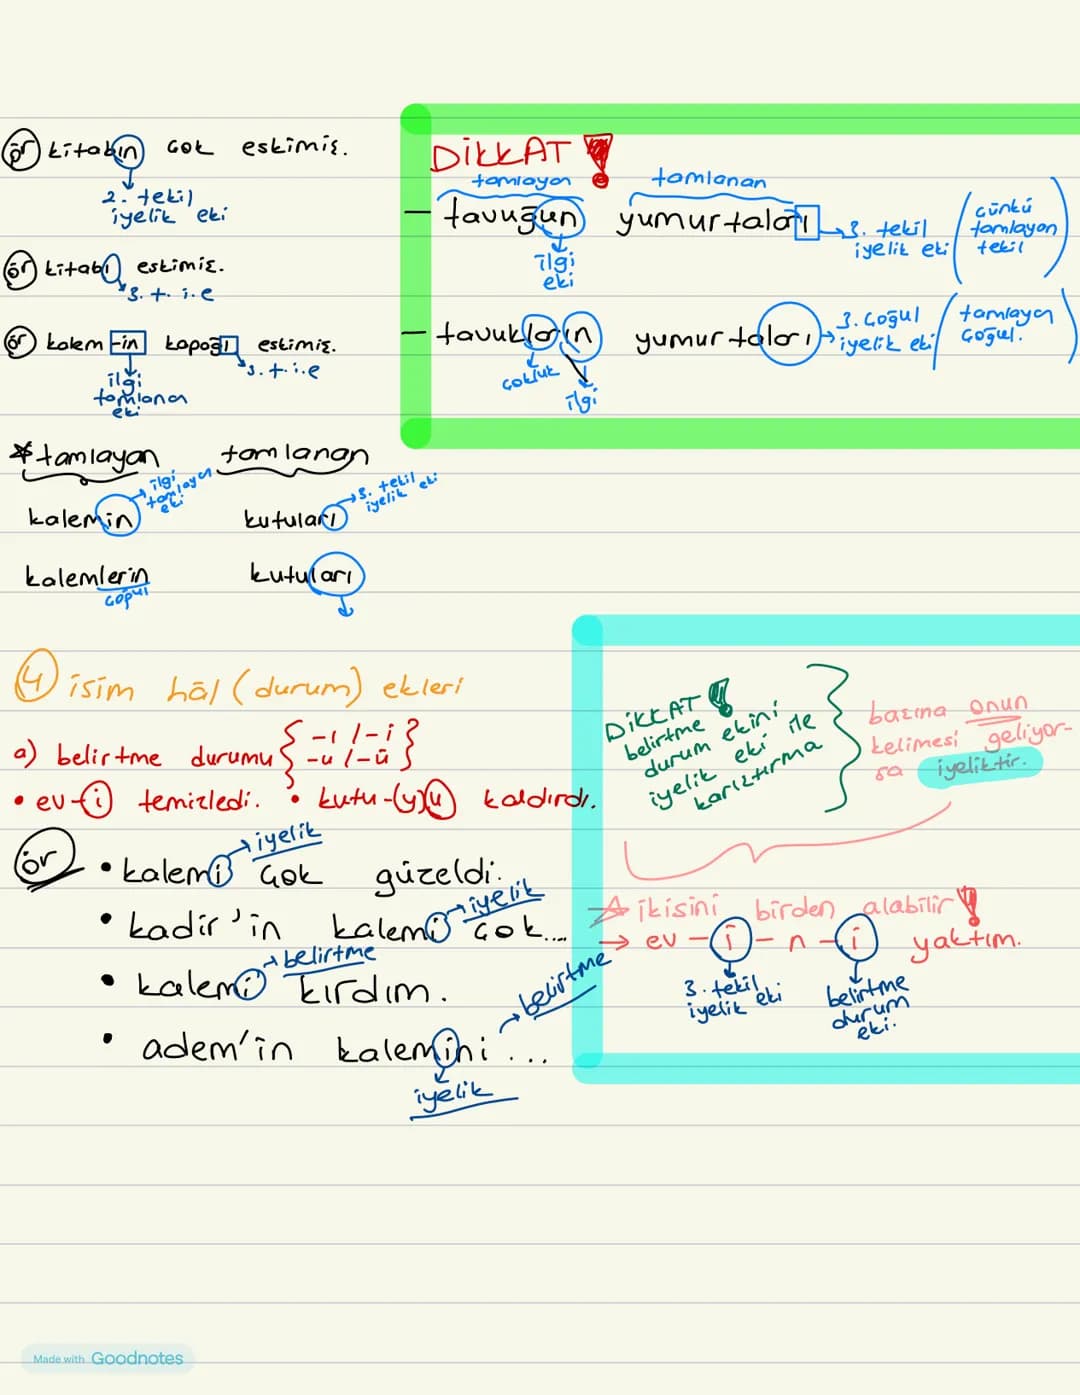 ör kitabın çok eskimiş.
2. tekil
iyelik eki
ör kitabı eskimiş.
3. t. i.e
ör kalem -in kapağı eskimiş.
3. t. i.e
ilgi
tamlanan
eki
DİKKAT !
tamlayan tamlanan
— tavuğun yumurtaları → 3. tekil iyelik eki ( çünkü tamlayan tekil )
ilgi
eki
— tavukların yumurtaları → 3. çoğul iyelik eki ( tamlayan çoğul. )
çokluk
ilgi
* tamlayan tamlanan
kalemin → ilgi tamlayan eki
kutuları → 3. tekil iyelik eki
kalemlerin kutuları
çoğul
4 isim hâl (durum) ekleri
a) belirtme durumu { -ı / -i
-u / -ü }
• ev -i temizledi. • kutu -(y)u kaldırdı.
ör
• kalemi çok güzeldi. → iyelik
• kadir'in kalemi çok... → iyelik
• kalemi kırdım. → belirtme
• adem'in kalemini ... → belirtme
iyelik
DİKKAT !
belirtme
durum ekini
iyelik eki ile
karıştırma
başına onun
kelimesi geliyor-
sa iyeliktir.
ikisini birden alabilir !
→ ev - i - n - i yaktım.
3. tekil
iyelik eki
belirtme
durum
eki.
Made with Goodnotes